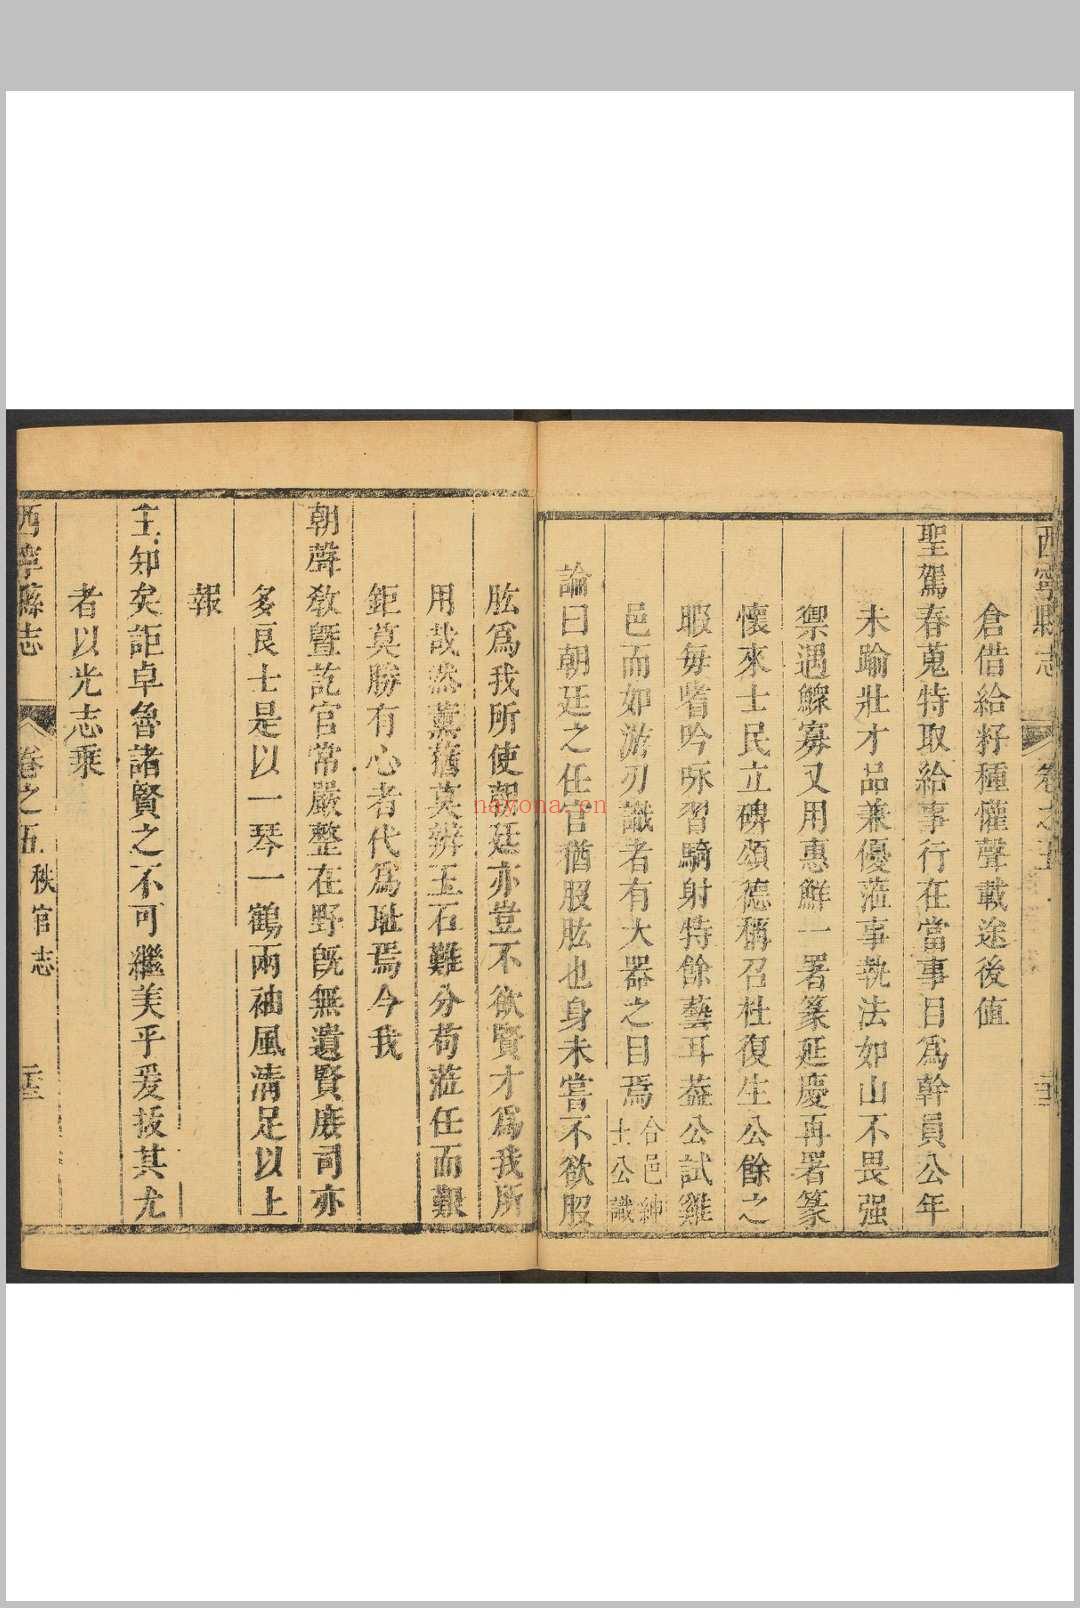 西寧縣志
卷之五
倉借給籽種懽聲載途後值
聖駕春蒐特取給事行在當事目爲幹員公年
未踰壯才品兼優蒞事執法如山不畏强
禦遇鰥寡又用惠鮮一署篆延慶再署篆
懷來士民立碑頌德稱召杜復生公餘之
暇每嗜吟咏習騎射特餘藝耳葢公試雞
邑而如游刃識者有大器之目焉
合邑紳
士公識
論曰朝廷之任官猶股肱也身未嘗不欲股
肱爲我所使朝廷亦豈不欲賢才爲我所
用哉然薰蕕莫辨玉石難分苟蒞任而艱
鉅莫勝有心者代爲耻焉今我
朝聲敎暨訖官常嚴整在野旣無遺賢庶司亦
多良士是以一琴一鶴兩袖風清足以上
報
主知矣詎卓魯諸賢之不可繼美乎爰拔其尤
者以光志乘
西寧縣志
卷之五
秩官志
nayona.cn